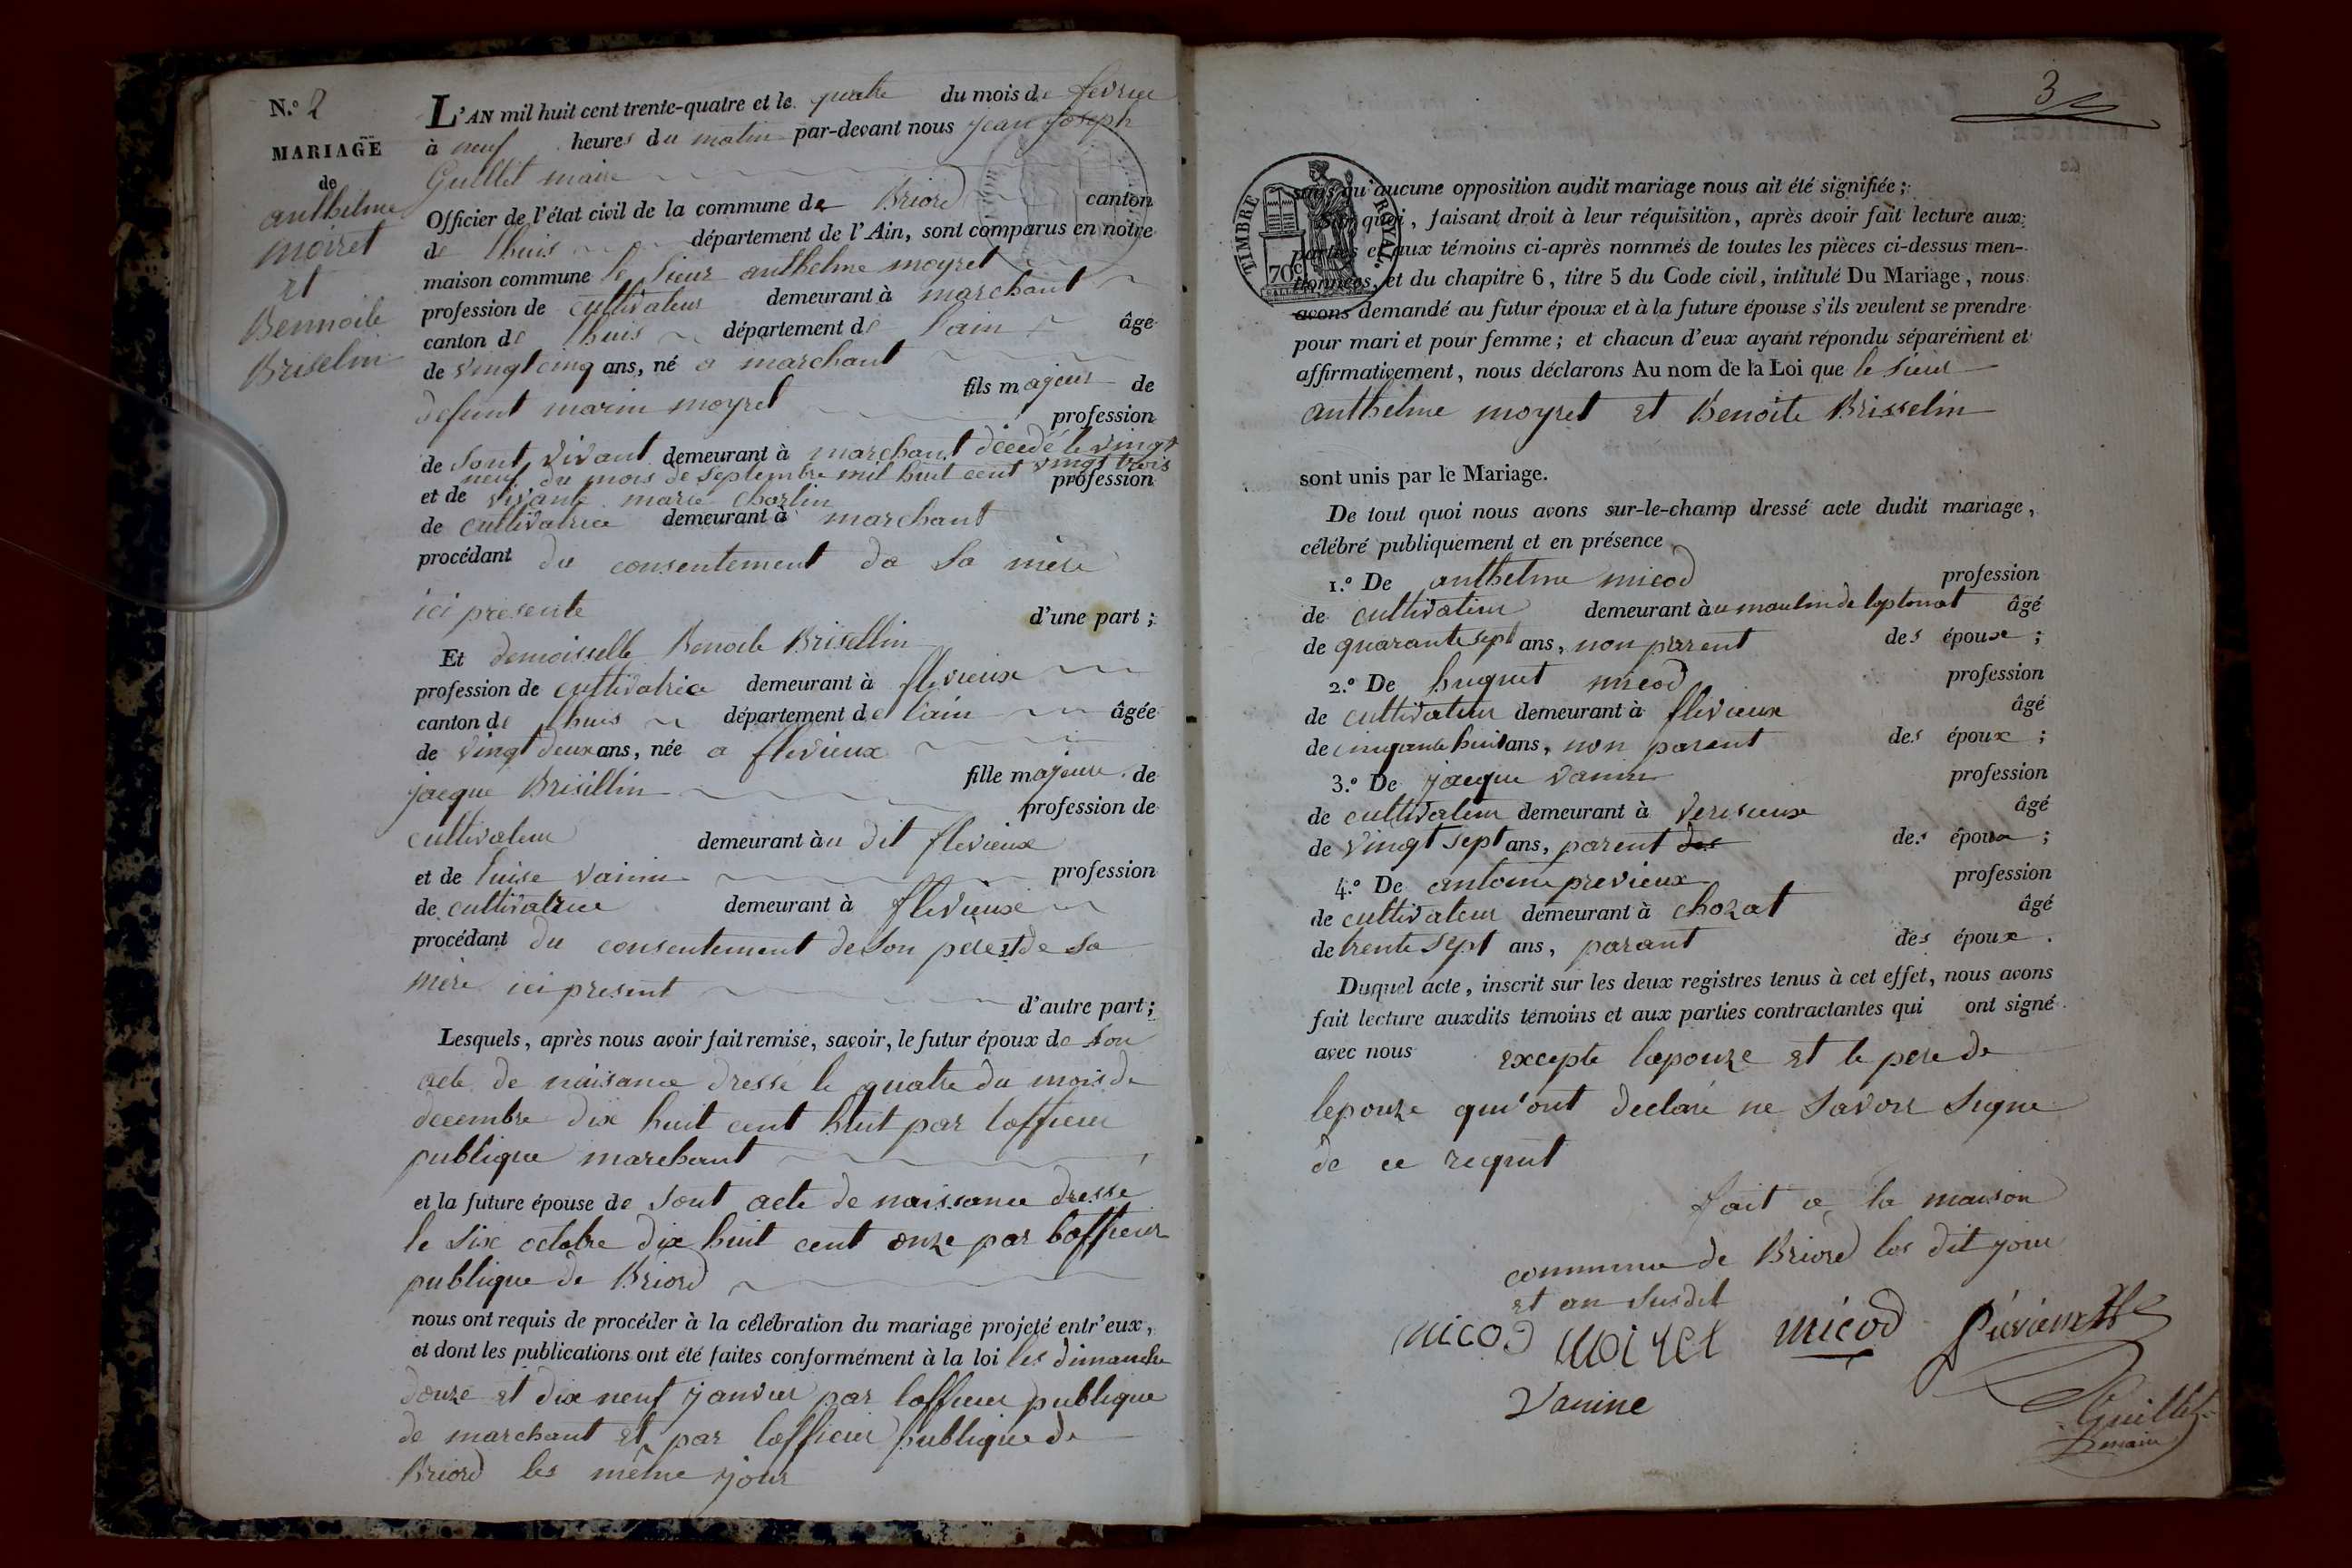 N.º 2
MARIAGE
de
anthelme
moiret
et
Bennoite
Briselin
L'AN mil huit cent trente-quatre et le quatre du mois de fevrier
à neuf heures du matin par-devant nous jean joseph
Guillet maire
Officier de l'état civil de la commune de Briord canton
de lhuis département de l'Ain, sont comparus en notre
maison commune le sieur anthelme moyret
profession de cultivateur demeurant à marchant
canton de lhuis département de lain âge
de vingt cinq ans, né a marchant
fils majeur de
defunt marin moyret
profession
de sont vivant demeurant à marchant décedé le vingt
neuf du mois de septembre mil huit cent vingt trois
et de vivante marie Chorlin profession
de cultivatrice demeurant à marchant
procédant du consentement de sa mère
ici presente
d'une part ;
Et demoiselle Benoite Brisellin
profession de cultivatrice demeurant à flevieux
canton de lhuis département de lain âgée
de vingt deux ans, née a flevieux
fille majeure de
jacque Brisillin
profession de
cultivateur demeurant àu dit flevieux
et de luise vanine profession
de cultivatrice demeurant à flevieux
procédant du consentement de son père et de sa
mère ici present
d'autre part ;
Lesquels, après nous avoir fait remise, savoir, le futur époux de son
acte de naisance dressé le quatre du mois de
decembre dix huit cent huit par lofficier
publique marchant
et la future épouse de sont acte de naissance dressé
le six octobre dix huit cent onze par lofficier
publique de Briord
nous ont requis de procéder à la célébration du mariage projeté entr'eux,
et dont les publications ont été faites conformément à la loi les dimanche
douze et dix neuf janvier par lofficier publique
de marchant et par lofficier publique de
Briord les même jour
3
TIMBRE ROYAL.
70c
sans qu'aucune opposition audit mariage nous ait été signifiée ;
Sur quoi, faisant droit à leur réquisition, après avoir fait lecture aux
parties et aux témoins ci-après nommés de toutes les pièces ci-dessus men-
tionnées, et du chapitre 6, titre 5 du Code civil, intitulé Du Mariage, nous
avons demandé au futur époux et à la future épouse s'ils veulent se prendre
pour mari et pour femme ; et chacun d'eux ayant répondu séparément et
affirmativement, nous déclarons Au nom de la Loi que le sieur
anthelme moyret et Benoite Brisselin
sont unis par le Mariage.
De tout quoi nous avons sur-le-champ dressé acte dudit mariage,
célébré publiquement et en présence
1.º De anthelme micod profession
de cultivateur demeurant àu moulin de âgé
de quarante sept ans, non parent des époux ;
2.º De huguet micod profession
de cultivateur demeurant à flevieux âgé
de cinquante huit ans, non parent des époux ;
3.º De jacque vanin profession
de cultivateur demeurant à verisieux âgé
de vingt sept ans, parent des des époux ;
4.º De antoine previeux profession
de cultivateur demeurant à chozat âgé
de trente sept ans, parant des époux .
Duquel acte, inscrit sur les deux registres tenus à cet effet, nous avons
fait lecture auxdits témoins et aux parties contractantes qui ont signé
avec nous excepte lepouze et le pere de
lepouze qui'ont declaré ne savoir signe
de ce requit
fait a la maison
commune de Briord les dit jour
et an susdit
micod moiret micod
vanine
Guillet
maire